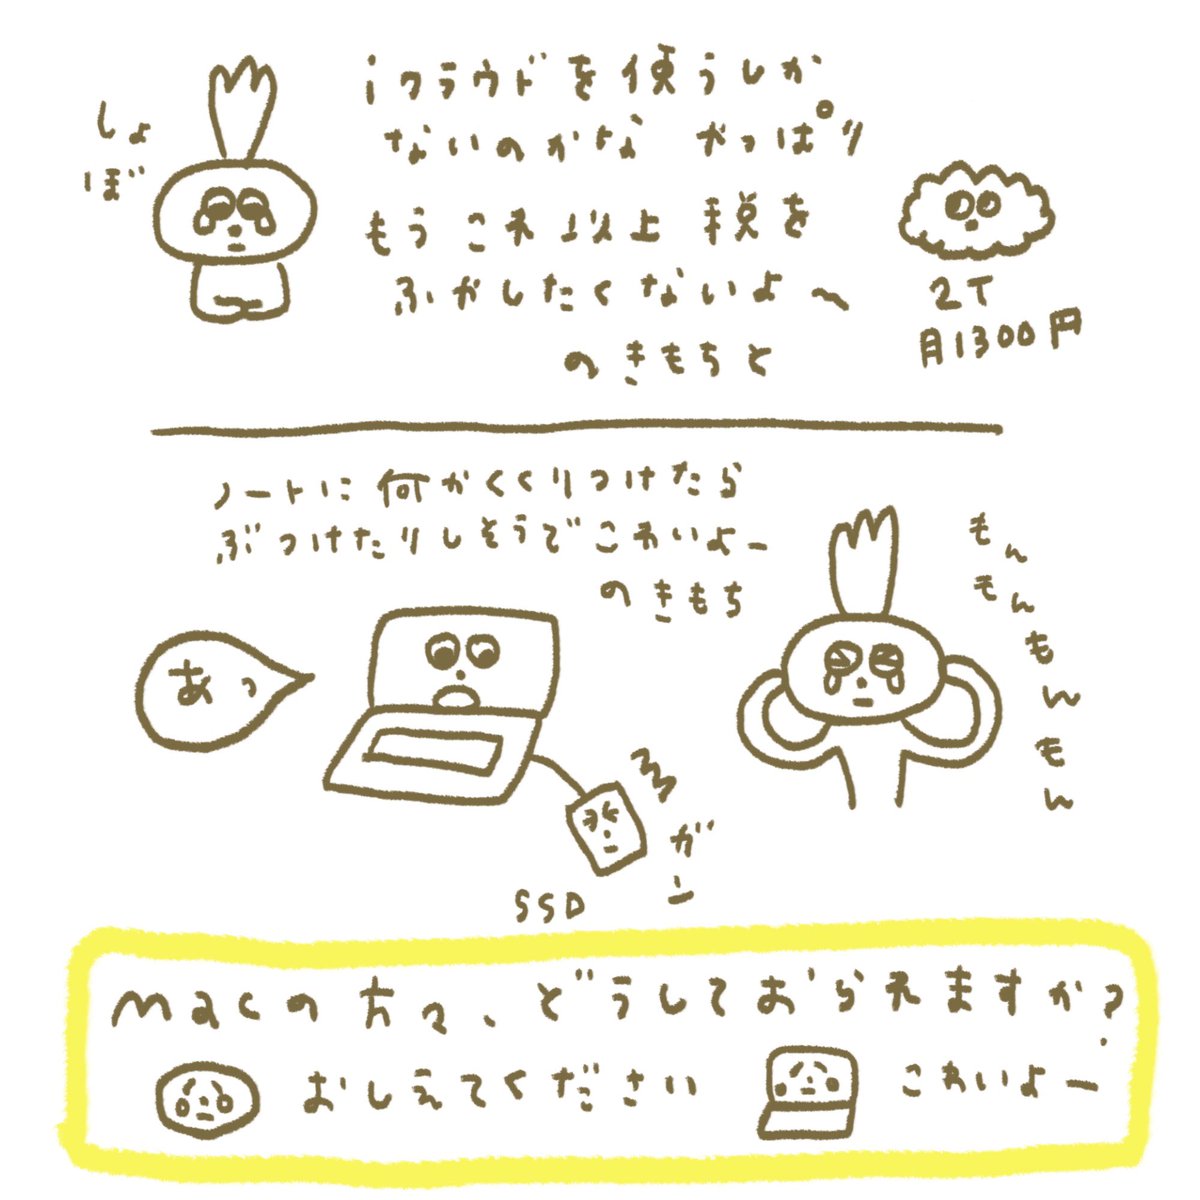 しょ
ぼ
iクラウドを使うしか
ないのかな やっぱり
もうこれ以上 税を
ふやしたくないよ〜
のきもちと
2T
月1300円
ノートに何かくくりつけたら
ぶつけたりしそうでこわいよー
のきもち
もん
もん
もん
もん
あっ
ガン
SSD
macの方々、どうしておられますか?
おしえてください
こわいよー